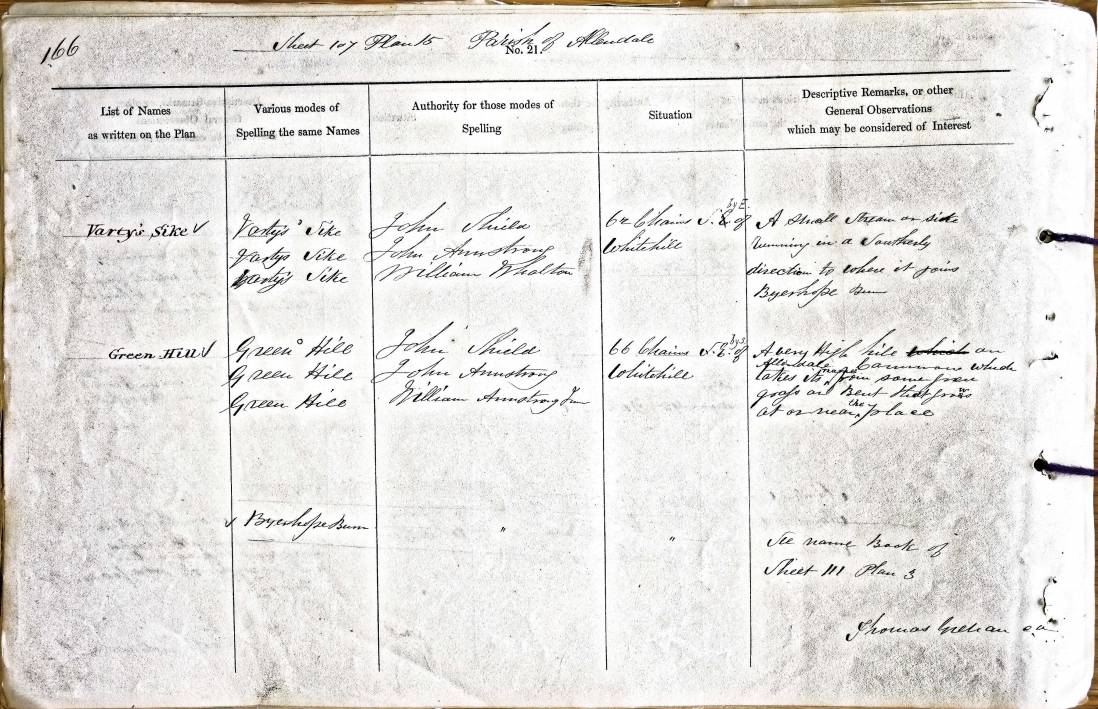 166
Sheet 107 Plan 15 Parish of Allendale
No. 21.
List of Names
as written on the Plan
Various modes of
Spelling the same Names
Authority for those modes of
Spelling
Situation
Descriptive Remarks, or other
General Observations
which may be considered of Interest
Varty's Sike
Varty's Sike
Vartys Sike
Varty's Sike
John Shield
John Armstrong
William Whalton
62 Chains S.E. by E. of
Whitehill
A small stream or sike
running in a Southerly
direction to where it joins
Byerhope Burn
Green Hill
Green Hill
Green Hill
Green Hill
John Shield
John Armstrong
William Armstrong Jun
66 Chains S.E. by S. of
Whitehill
A very High hill which on
Allendale Common which
takes its name from some green
grass or Bent that grows
at or near the place
Byerhope Burn
"
"
See name Book of
Sheet 111 Plan 3
Thomas